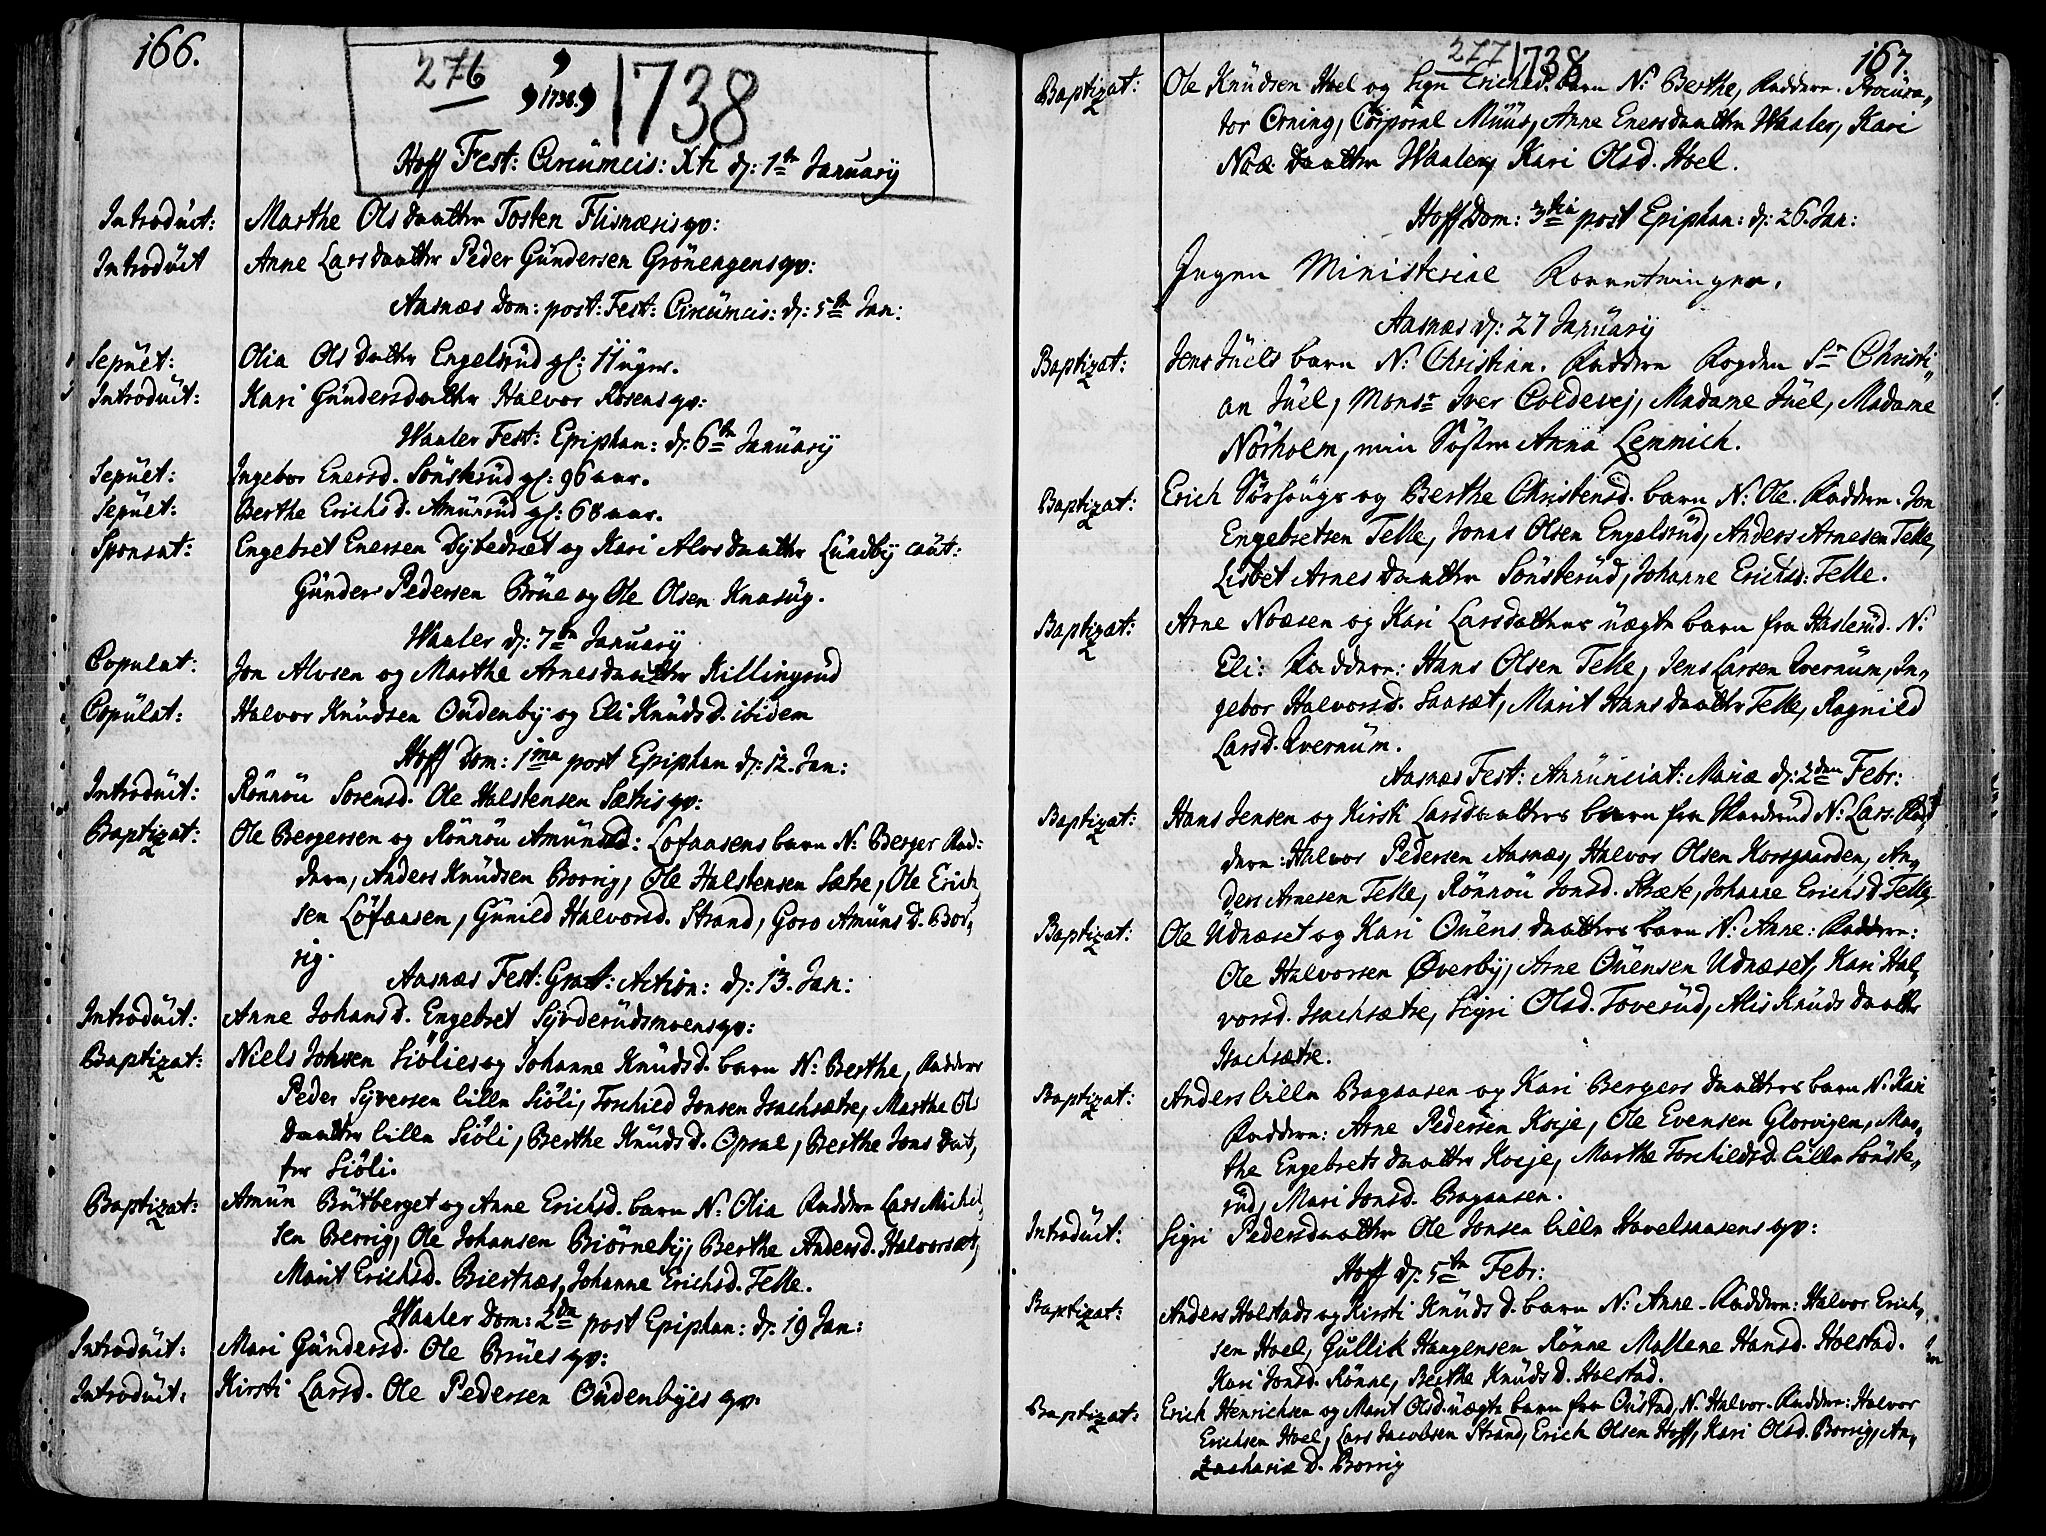 166.
276
1738.
1738
Hoff Fest: Circumcis: Xti d: 1te January
Introduct: Marthe Olsdaatter Tosten Flisnæsis qv:
Introduct Anne Larsdaatter Peder Gundersen Grönengens qv:
Aasnæs Dom: post: Fest: Circumcis: d: 5te Jan:
Sepult: Olia Olsdatter Engelsrud gl: 11 uger.
Introduct: Kari Gundersdatter Halvor Rosens qv:
Waaler Fest: Epiphan: d: 6te January
Sepult: Ingebor Enersd. Sönsterud gl: 96 aar.
Sepult: Berthe Erichsd. Amunrud gl: 68 aar.
Sponsat: Engebret Enersen Dybedræt og Kari Alvsdaatter Lundby caut:
Gunder Pedersen Brue og Ole Olsen Knasug.
Waaler d: 7te January
Copulat: Jon Alvsen og Marthe Arnesdaatter Killingrud
Copulat: Halvor Knudsen Oudenby og Eli Knudsd. ibidem
Hoff Dom: 1ma post Epiphan d: 12. Jan:
Introduct: Rönnou Sorensd. Ole Halstensen Sætris qv:
Baptizat: Ole Bergersen og Rönnou Amunsd: Löfaasens barn N: Berger Fad:
derne, Anders Knudsen Borrig, Ole Halstensen Sætre, Ole Erich
sen Löfaasen, Gunild Halvorsd. Strand, Goro Amunsd. Bor,
rig.
Aasnæs Fest: Grat: Action: d: 13. Jan:
Introduct: Anne Johansd. Engebret Syvderudsmoens qv:
Baptizat: Niels Johsen Siölies og Johanne Knudsd. barn N: Berthe, Faddere
Peder Syversen lille Siöli, Torchild Jonsen Isachsætre, Marthe Ols
daatter lille Siöli, Berthe Knudsd. Opsal, Berthe Jons dat,
ter Siöli.
Baptizat: Amun Butberget og Anne Erichsd. barn N: Olia Faddere Lars Michel
sen Berrig, Ole Johansen Biörneby, Berthe Andersd. Halvorsæt,
Marit Erichsd. Biertnæs, Johanne Erichsd. Telle.
Waaler Dom: 2da post Epiphan: d: 19 Jan:
Introduct: Mari Gundersd. Ole Brues qv:
Introduct: Kirsti Larsd. Ole Pedersen Oudenbyes qv.
277
1738
167.
Baptizat: Ole Knudsen Hoel og Sign Erichsd. barn N: Berthe, Faddere. Procura,
tor Orning, Corporal Muus, Anne Enersdaatter Waaler, Kari
Noæ daatter Waaler, Kari Olsd. Hoel.
Hoff Dom: 3tia post Epiphan: d: 26. Jan:
Ingen Ministerial Forretninger.
Aasnæs d: 27 January
Baptizat: Jens Juels barn N: Christian. Faddere Fogden Sr Christi,
an Juel, Monsr Iver Coldevej, Madame Juel, Madame
Nörholm, min Söster Anna Lemmich.
Baptizat: Erich Sörhougs og Berthe Christensd. barn N: Ole. Faddere. Jon
Engebretsen Telle, Jonas Olsen Engelsrud, Anders Arnesen Telle,
Lisbet Arnesdaatter Sönsterud, Johanne Erichsd: Telle.
Baptizat: Arne Noæsen og Kari Larsdatters uægte barn fra Haslerud. N:
Eli: Faddere: Hans Olsen Telle, Jens Larsen Qvernum, In,
gebor Halvorsd. Saasæt, Marit Hansdaatter Telle, Ragnild
Larsd. Qvernum.
Aasnæs Fest: Annunciat: Mariæ d: 2den Febr:
Baptizat: Hans Jensen og Kirsti Larsdaatters barn fra N: Lars. Fad
derne: Halvor Pedersen Aasnæs, Halvor Olsen Korsgaarden, An,
ders Arnesen Telle, Rönnou Jonsd. Stræte, Johanne Erichsd. Telle
Baptizat: Ole Udnæset og Kari Ouens daatters barn N: Anne: Faddere:
Ole Halvorsen Øverby, Arne Ouensen Udnæset, Kari Hal,
vorsd. Isachsætre, Sigri Olsd. Toverud, Alis Knudsdaatter
Isachsætre.
Baptizat: Anders lille Bagaasen og Kari Bergers daatters barn N. Kari
Faddere: Arne Pedersen Koje, Ole Evensen Glorvigen, Mar,
the Engebretsdaatter Koje, Marthe Torchildsd. lille Sönste,
rud, Mari Jonsd. Bagaasen.
Introduct: Sigri Pedersdaatter Ole Jonsen lille Havelsaasens qv:
Hoff d: 5te Febr:
Baptizat: Anders Holstads og Kirsti Knudsd. barn N: Anne. Faddere: Halvor Erich,
sen Hoel, Gullik Haagensen Rönne Mallene Hansd. Holstad.
Kari Jonsd. Rönne, Berthe Knudsd. Holstad.
Baptizat: Erich Henrichsen og Marit Olsd. uægte barn fra Oustad, N. Halvor. Faddere: Halvor
Erichsen Hoel, Lars Jacobsen Strand, Erich Olsen Hoff, Kari Olsd. Borrig, An,
Zachariæ d. Borrig